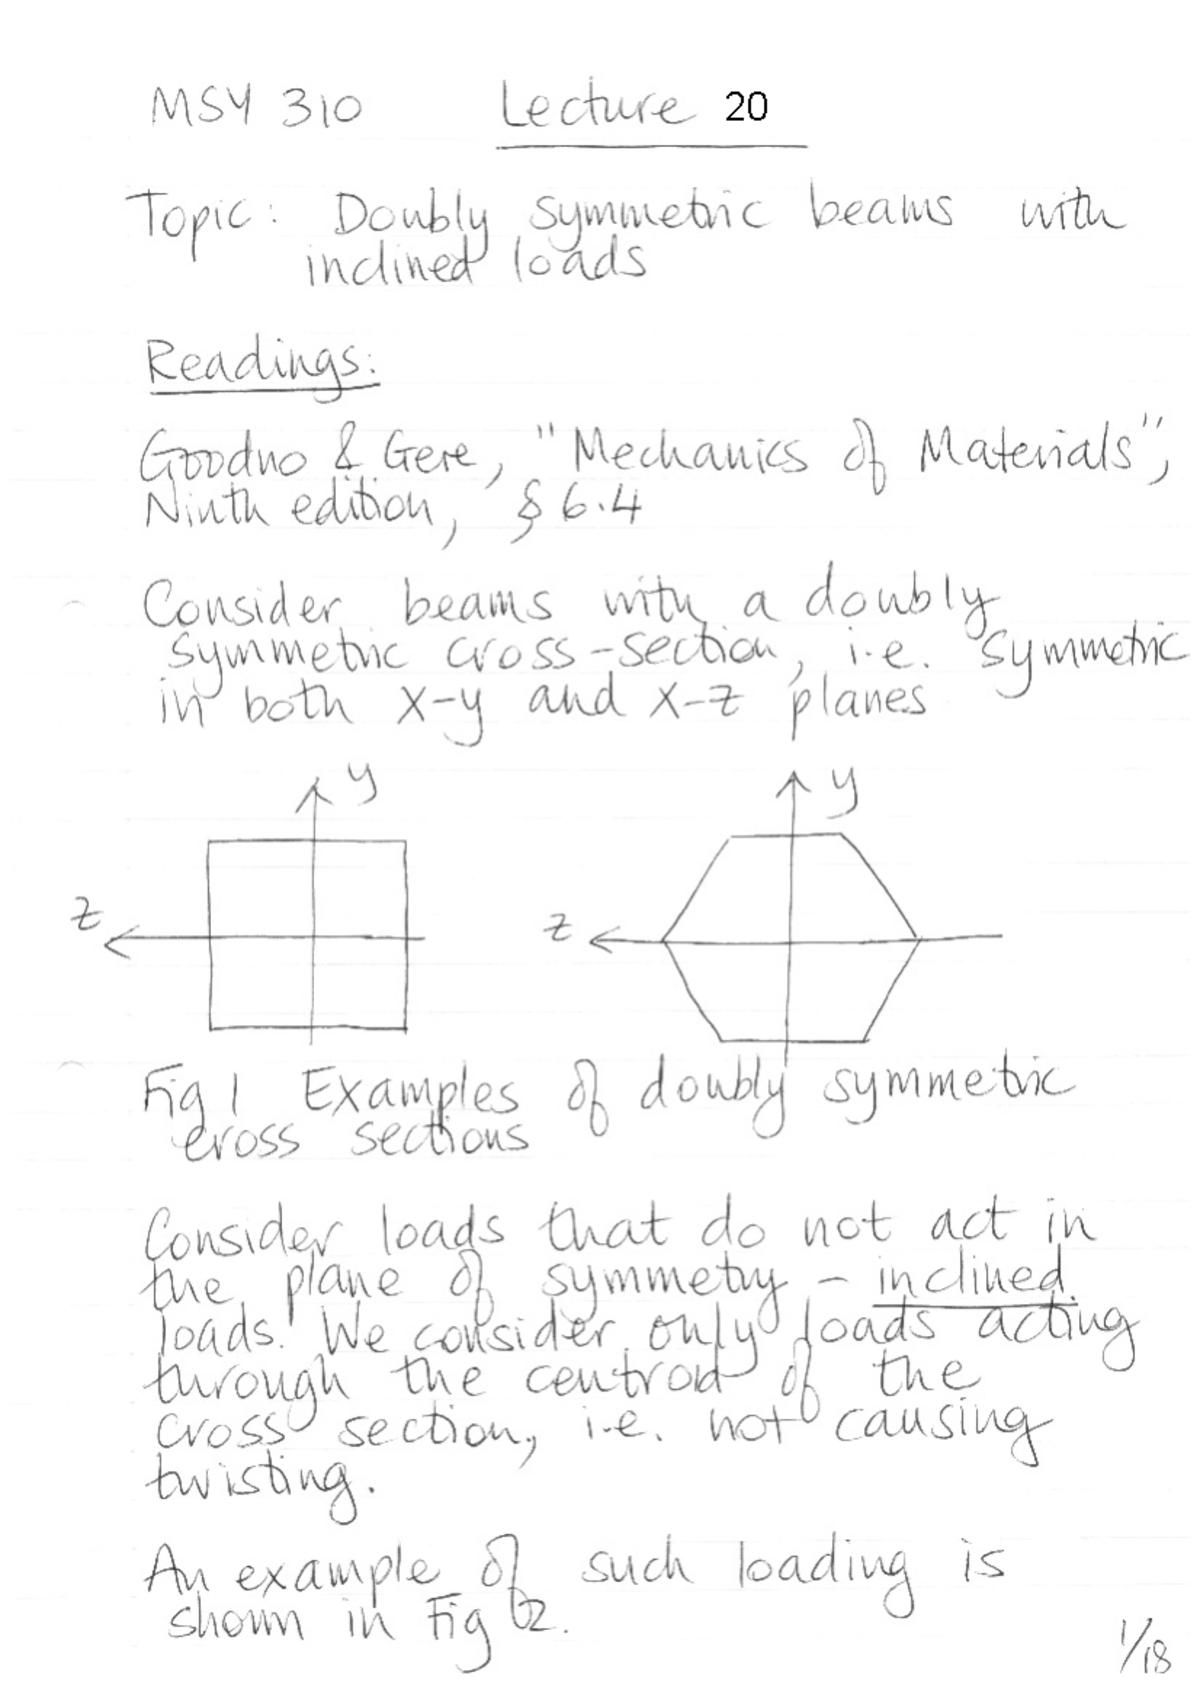 MSY 310 Lecture 20
Topic: Doubly symmetric beams with
inclined loads
Readings:
Goodno & Gere, "Mechanics of Materials",
Ninth edition, § 6.4
Consider beams with a doubly
symmetric cross-section, i.e. symmetric
in both x-y and x-z planes
y y
z z
Fig 1 Examples of doubly symmetric
cross sections
Consider loads that do not act in
the plane of symmetry - inclined
loads. We consider only loads acting
through the centroid of the
cross section, i.e. not causing
twisting.
An example of such loading is
shown in Fig 2.
1/18